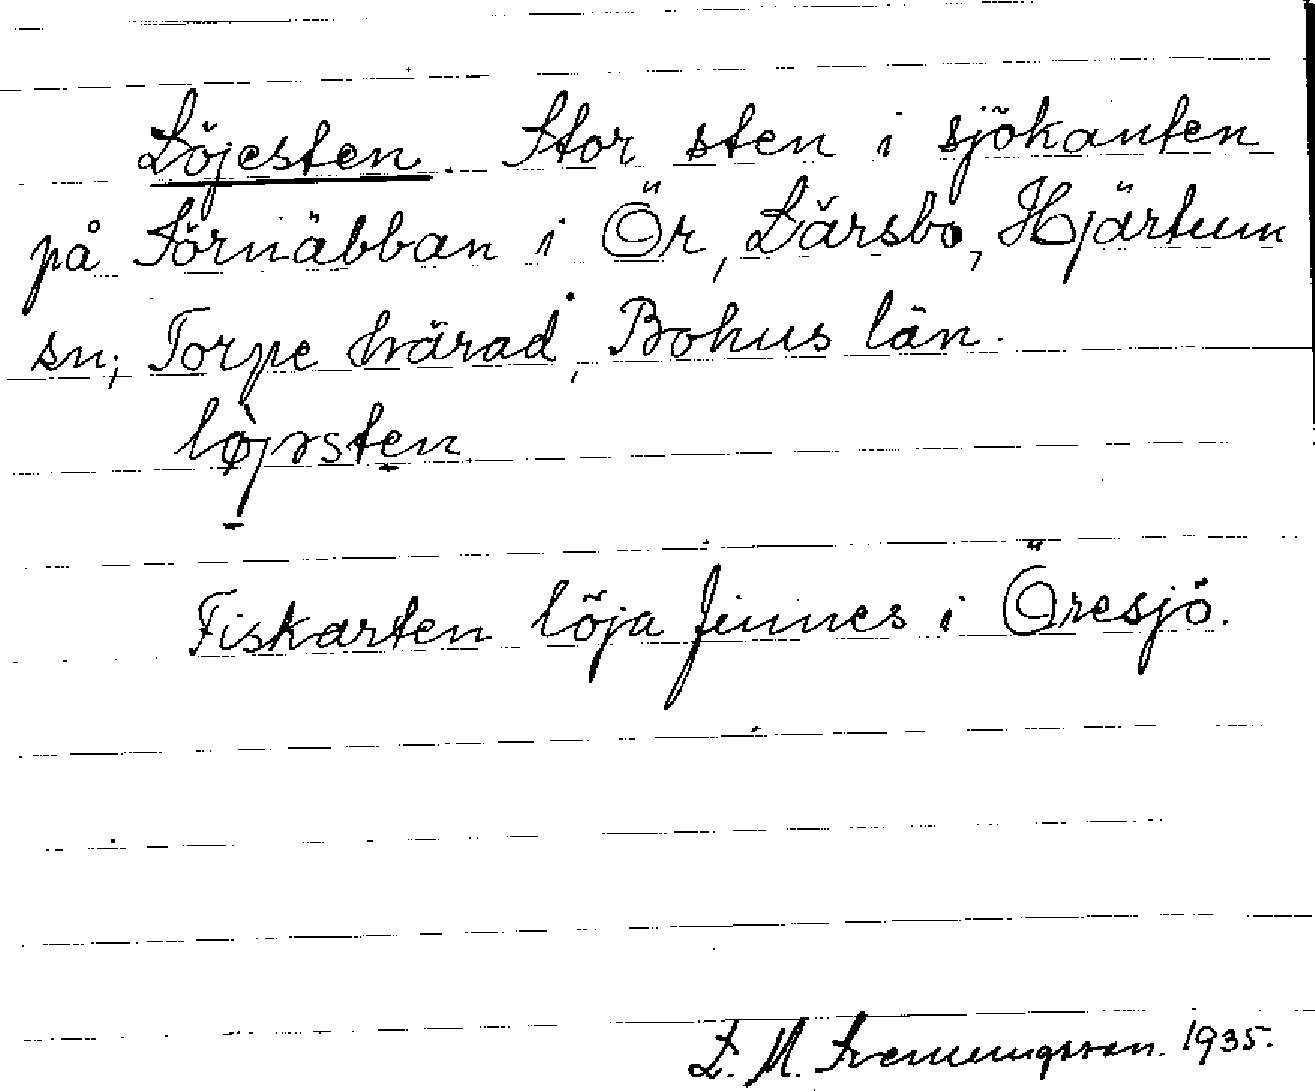 Löjesten. Stor sten i sjökanten
på Törnäbban i Ör, Lärsbo, Hjärtum
sn; Torpe härad, Bohus län.
lø̀jəsten.
Fiskarten löja finnes i Öresjö.
L. M. Svenungsson. 1935.